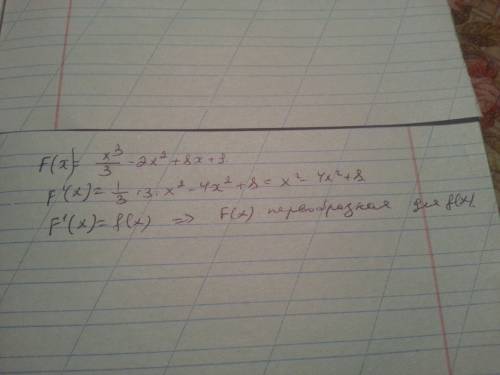 F(x)= x³/3 - 2x² + 8x + 3
F'(x) = 1/3 · 3 · x² - 4x² + 8 = x² - 4x² + 8
F'(x) = f(x) => F(x) первообразная для f(x).